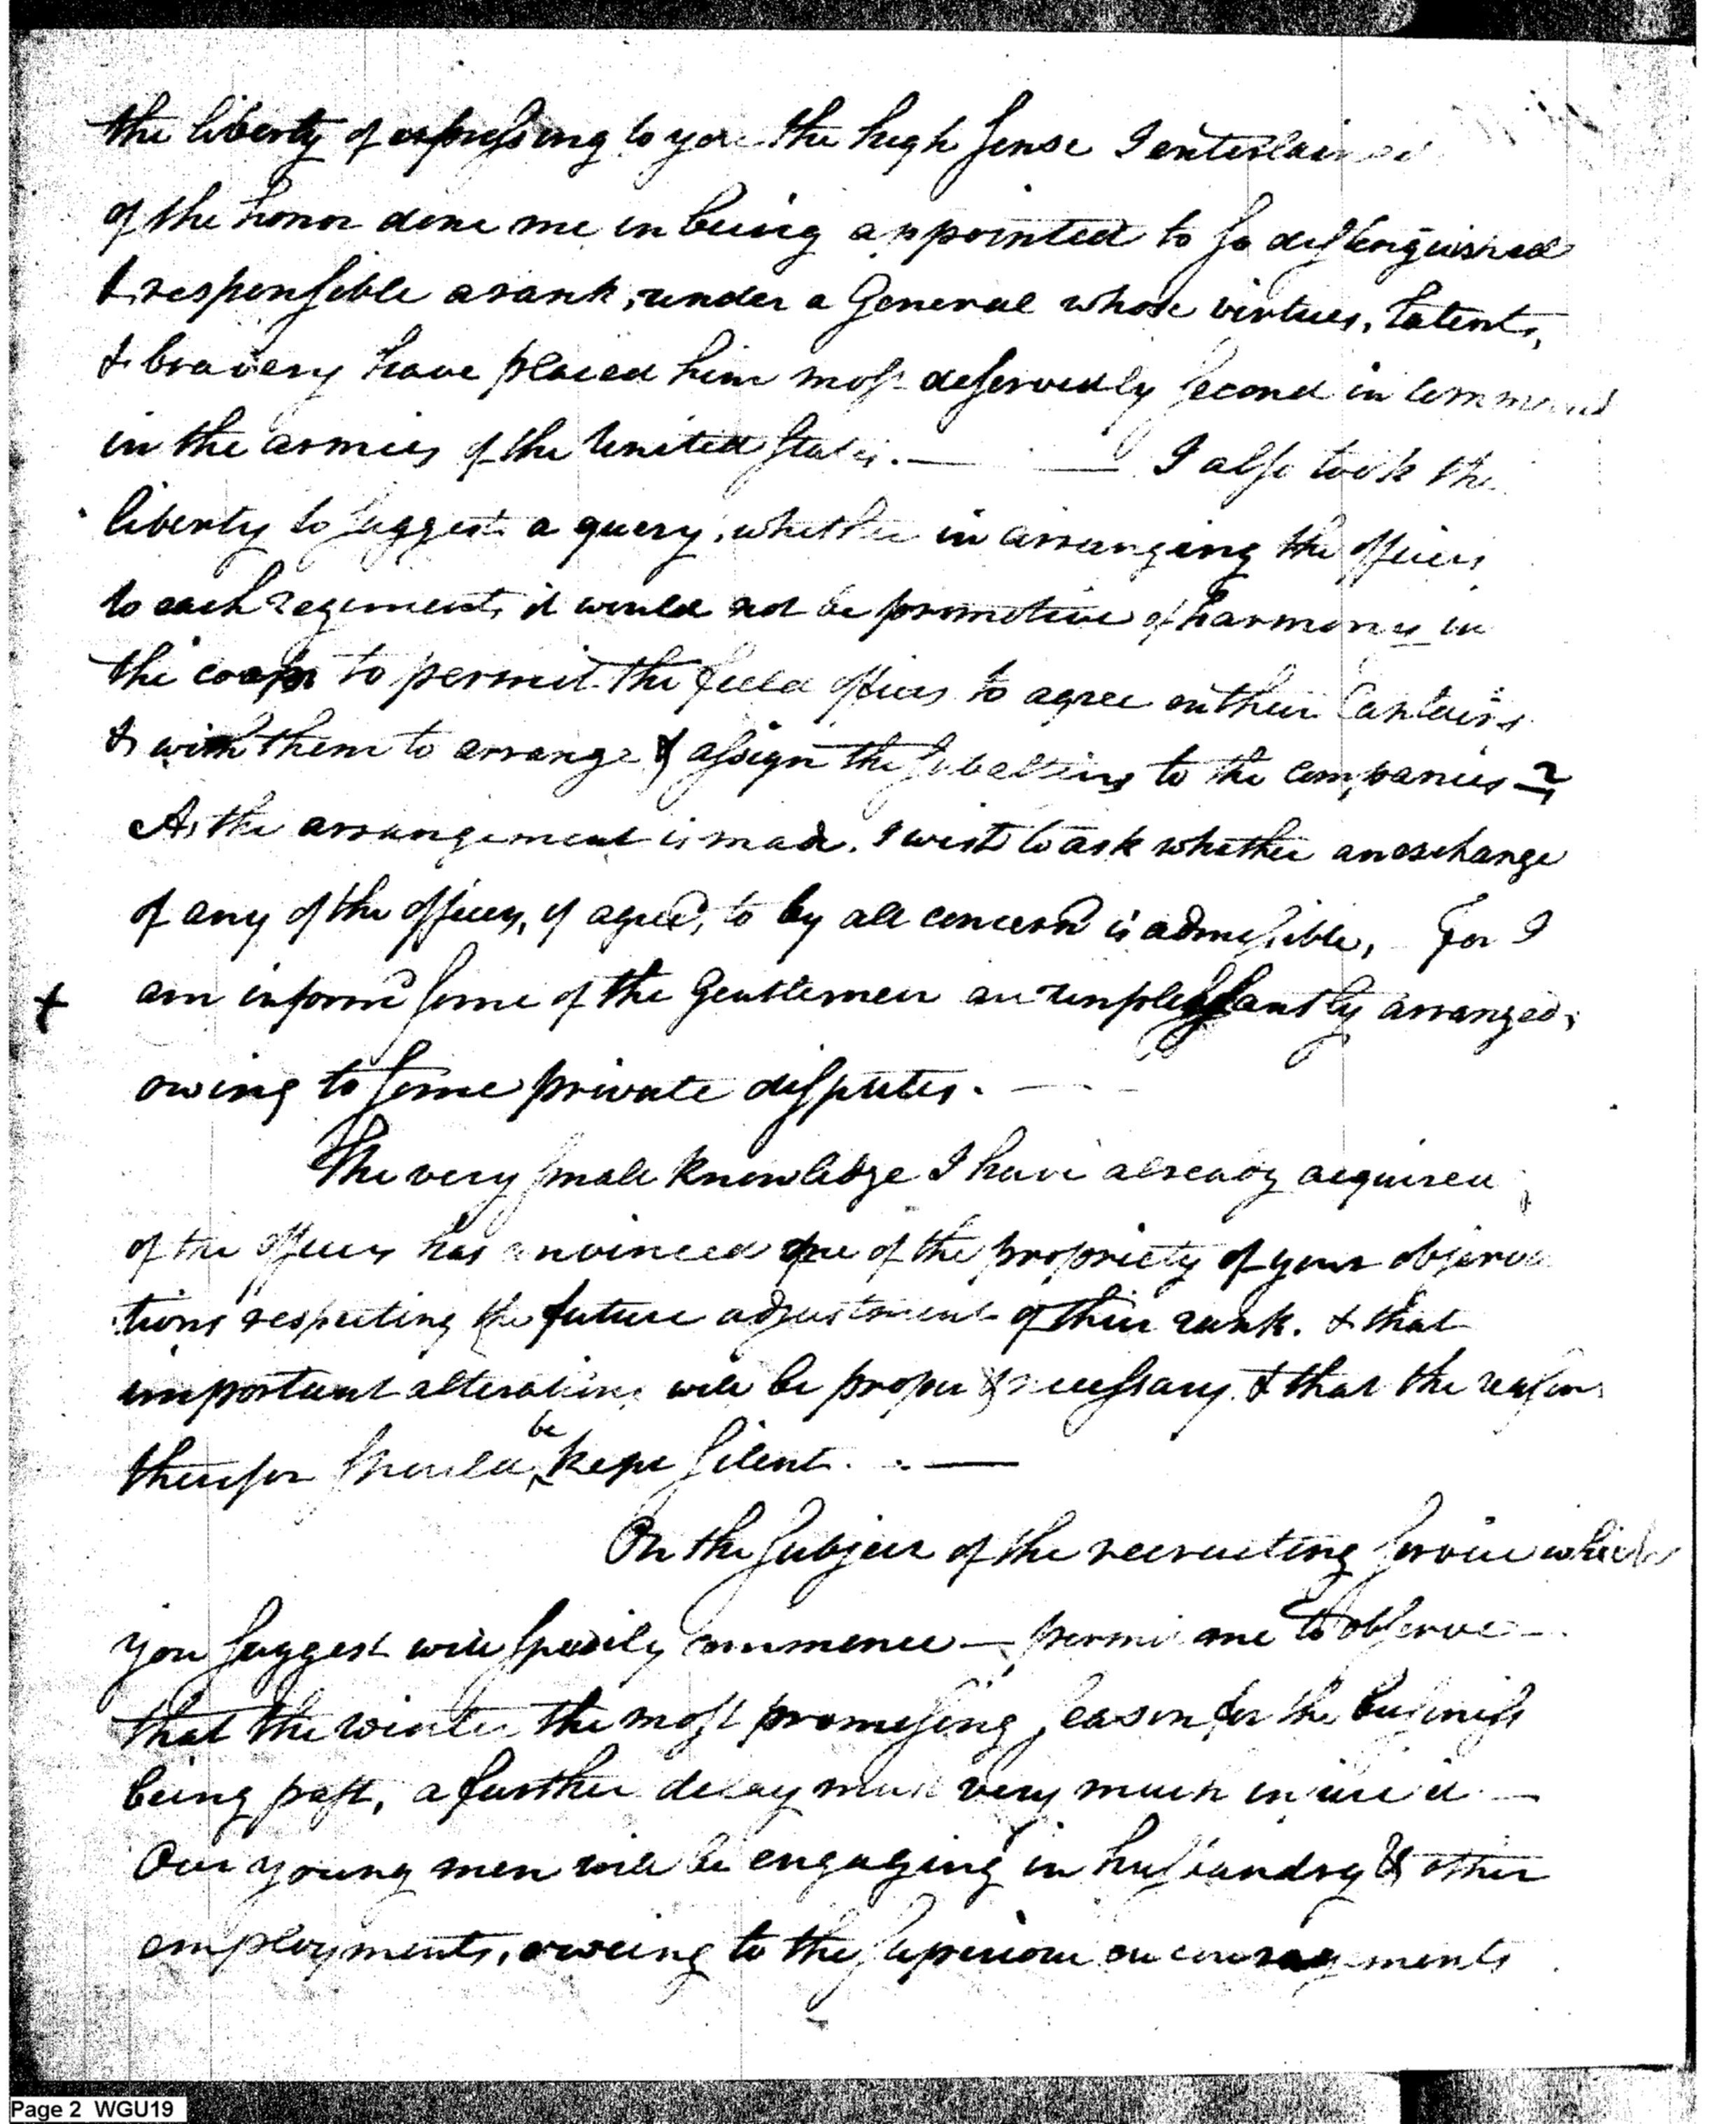 the liberty of expressing to you the high sense I entertained
of the honor done me in being appointed to so distinguished
& responsible a rank, under a General whose virtues, talents,
& bravery have placed him most deservedly second in command
in the armies of the United States. — — I also took the
liberty to suggest a query, whether in arranging the officers
to each regiment, it would not be promotive of harmony in
the corps to permit the field officers to agree on their Captains
& with them to arrange & assign the subalterns to the companies ?
As the arrangement is made. I wish to ask whether an exchange
of any of the officers, if agreed, to by all concernd is admissible, For I
+ am informd some of the Gentlemen are unpleasantly arranged,
owing to some private disputes. —
The very small knowledge I have already acquired
of the officers has convinced me of the propriety of your observa
tions respecting the future adjustment of their rank. & that
important alterations will be proper & necessary & that the reasons
be
therefor should kept silent. . —
On the subject of the recruiting service which
you suggest will speedily commence — permit me to observe —
that the winter the most promising season for the business
being past, a further delay must very much injure it —
Our young men will be engaging in husbandry & other
employments, owing to the superiour encouragements
Page 2 WGU19